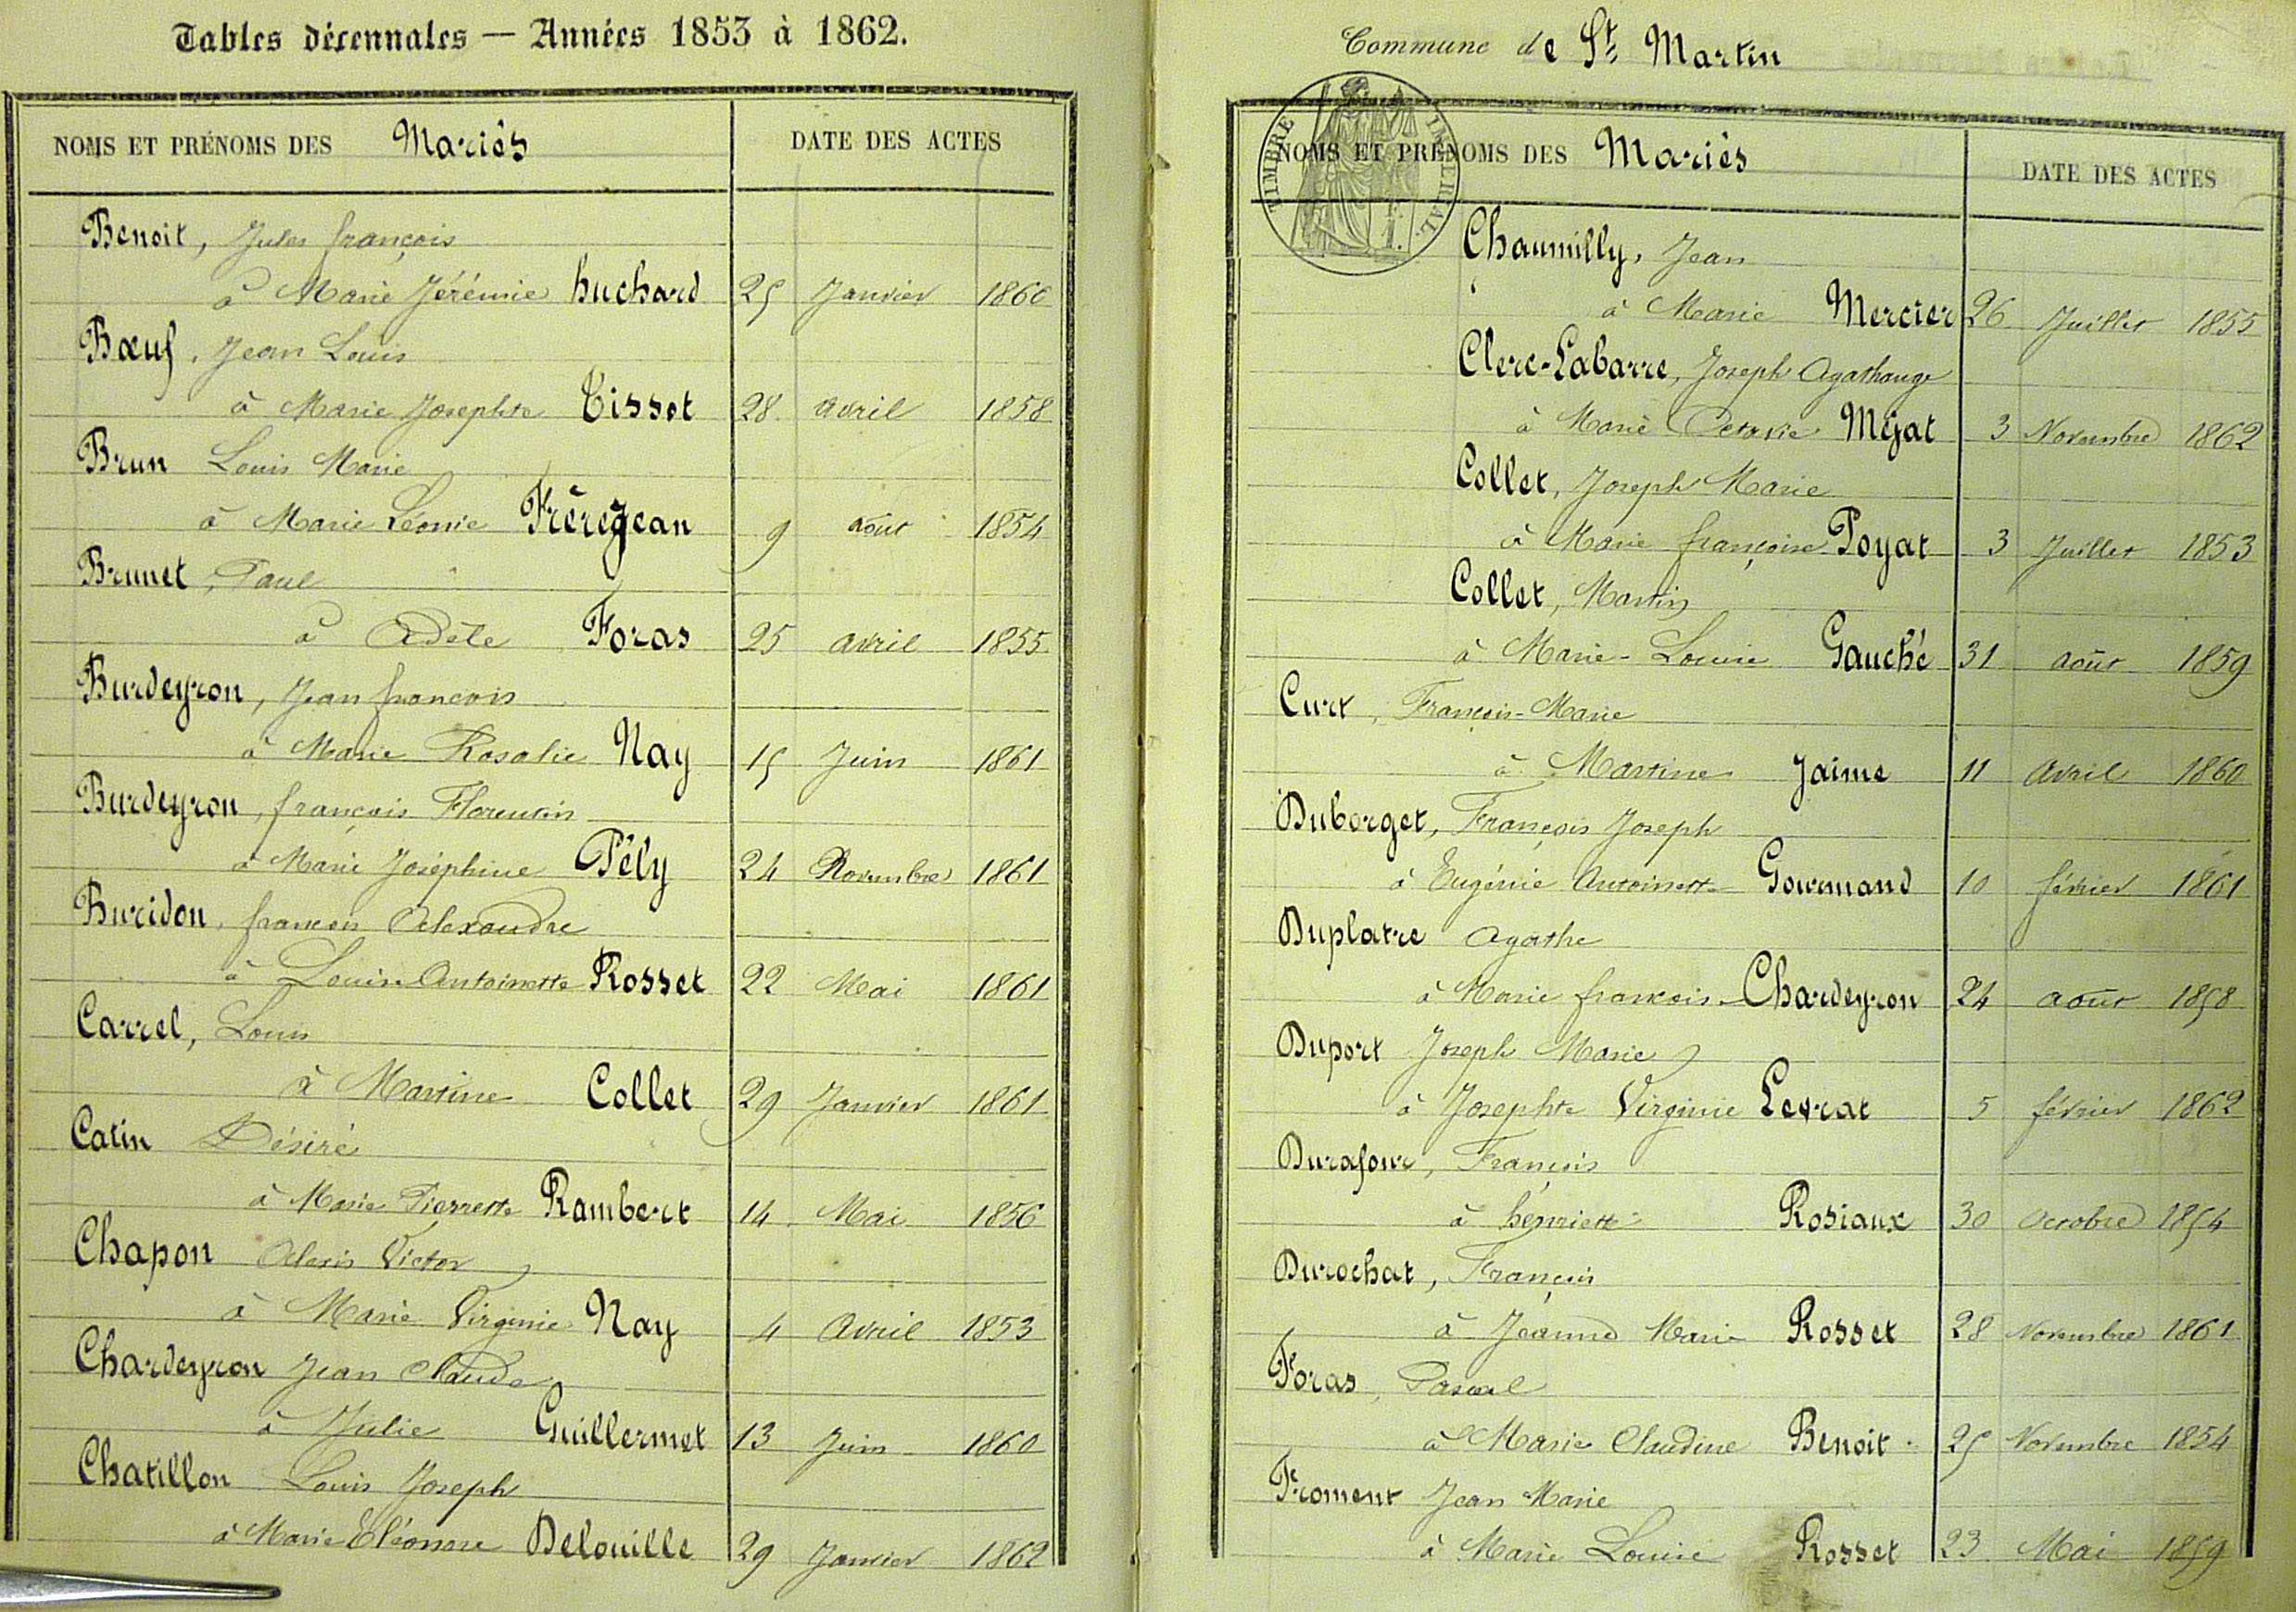 Tables décennales — Années 1853 à 1862.
NOMS ET PRÉNOMS DES Mariés DATE DES ACTES
Benoit, Jules françois
à Marie Jérémie huchard 25 Janvier 1860
Bœuf, Jean Louis
à Marie Josephte Tissot 28 avril 1858
Brun Louis Marie
à Marie Léonie Frèrejean 9 août 1854
Brunet, Paul
à Adèle Foras 25 avril 1855
Burdeyron, Jean francois
à Marie Rosalie Nay 15 Juin 1861
Burdeyron, françois Florentin
à Marie Joséphine Pély 24 Novembre 1861
Buridon, francois Alexandre
à Louise Antoinette Rosset 22 Mai 1861
Carrel, Louis
à Martine Collet 29 Janvier 1861
Catin Désiré
à Marie Pierrette Rambert 14 Mai 1856
Chapon Alexis Victor
à Marie Virginie Nay 4 Avril 1853
Chardeyron Jean Claude
à Julie Guillermet 13 Juin 1860
Chatillon Louis Joseph
à Marie Eléonore Delouille 29 Janvier 1862
Commune de St Martin
TIMBRE IMPÉRIAL
NOMS ET PRÉNOMS DES Mariés DATE DES ACTES
Chaumilly, Jean
à Marie Mercier 26 Juillet 1855
Clerc-Labarre, Joseph Agathange
à Marie Octavie Méjat 3 Novembre 1862
Collet, Joseph Marie
à Marie françoise Poyat 3 Juillet 1853
Collet, Martin
à Marie-Louise Gauché 31 août 1859
Curt, François-Marie
à Martine Jaime 11 avril 1860
Duborget, François Joseph
à Eugénie Antoinette Gourmand 10 février 1861
Duplatre Agathe
à Marie francois Chardeyron 24 août 1858
Duport Joseph Marie
à Josephte Virginie Levrat 5 février 1862
Durafour, François
à henriette Rosiaux 30 Octobre 1854
Durochat, François
à Jeanne Marie Rosset 28 Novembre 1861
Foras, Pascal
à Marie Claudine Benoit 25 Novembre 1854
Froment Jean Marie
à Marie Louise Rosset 23 Mai 1859